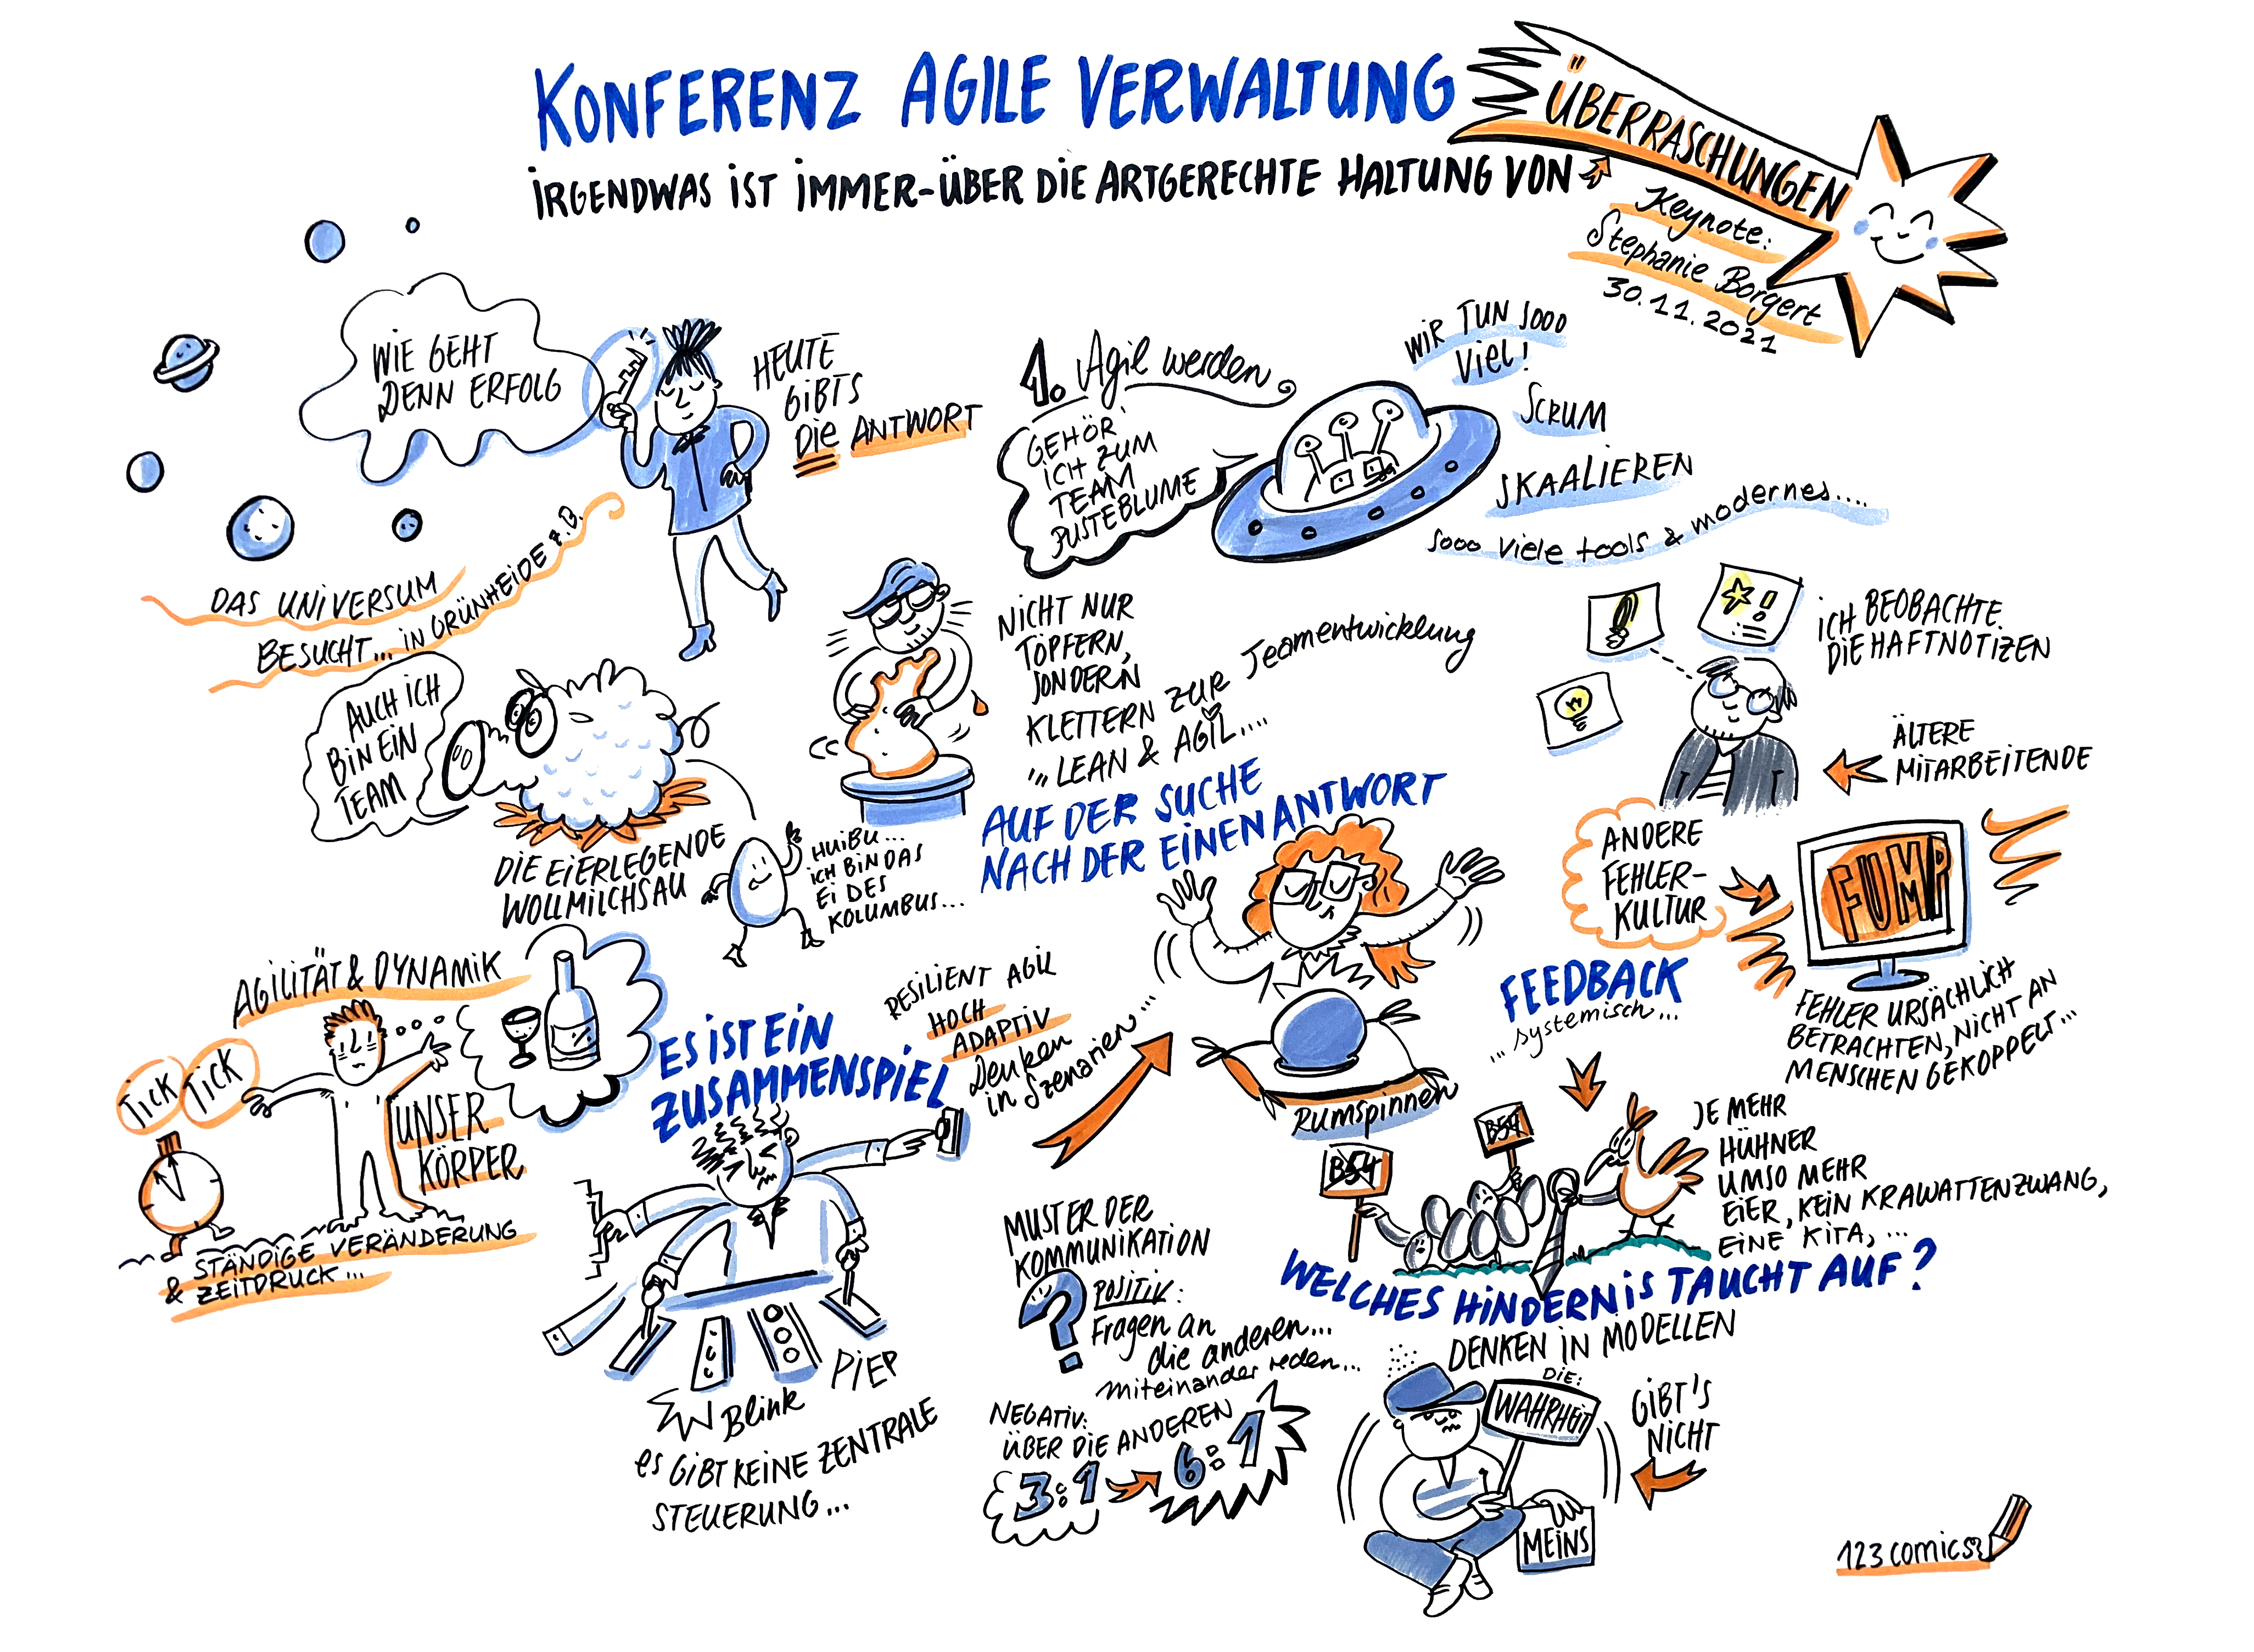 KONFERENZ AGILE VERWALTUNG
IRGENDWAS IST IMMER-ÜBER DIE ARTGERECHTE HALTUNG VON
ÜBERRASCHUNGEN
Keynote:
Stephanie Borgert
30.11.2021
WIE GEHT
DENN ERFOLG
HEUTE
GIBTS
DIE ANTWORT
DAS UNIVERSUM
BESUCHT... IN GRÜNHEIDE z.B.
1. Agil werden
GEHÖR'
ICH ZUM
TEAM
PUSTEBLUME
WIR TUN SOOO
VIEL!
SCRUM
SKAALIEREN
SOOO viele tools & modernes....
AUCH ICH
BIN EIN
TEAM
DIE EIERLEGENDE
WOLLMILCHSAU
HUIBU...
ICH BIN DAS
EI DES
KOLUMBUS...
NICHT NUR
TÖPFERN,
SONDERN
KLETTERN ZUR Teamentwicklung
"" LEAN & AGIL....
ICH BEOBACHTE
DIE HAFTNOTIZEN
ÄLTERE
MITARBEITENDE
AUF DER SUCHE
NACH DER EINEN ANTWORT
ANDERE
FEHLER-
KULTUR
FUMP
FEHLER URSÄCHLICH
BETRACHTEN, NICHT AN
MENSCHEN GEKOPPELT...
AGILITÄT & DYNAMIK
TICK
TICK
UNSER
KÖRPER
STÄNDIGE VERÄNDERUNG
& ZEITDRUCK...
ES IST EIN
ZUSAMMENSPIEL
Blink
PIEP
es GIBT KEINE ZENTRALE
STEUERUNG...
RESILIENT AGIL
HOCH
ADAPTIV
Denken
in Szenarien...
Rumspinnen
FEEDBACK
... systemisch...
B54
B54
JE MEHR
HÜHNER
UMSO MEHR
EIER, KEIN KRAWATTENZWANG,
EINE KITA,...
MUSTER DER
KOMMUNIKATION
?
POSITIV:
Fragen an
die anderen...
miteinander reden...
NEGATIV:
ÜBER DIE ANDEREN
3:1
6:1
WELCHES HINDERNIS TAUCHT AUF?
DENKEN IN MODELLEN
DIE:
WAHRHEIT
GIBT'S
NICHT
MEINS
123comics